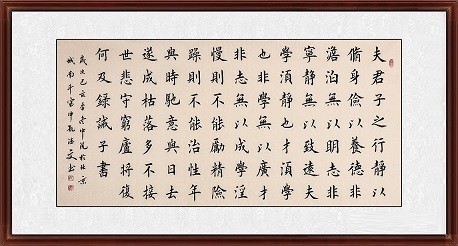 夫君子之行靜以
脩身儉以養德非
澹泊無以明志非
寧靜無以致遠夫
學須靜也才須學
也非學無以廣才
非志無以成學淫
慢則不能勵精險
躁則不能治性年
與時馳意與日去
遂成枯落多不接
世悲守窮廬將復
何及錄誡子書
歲次己亥於北京
城南書